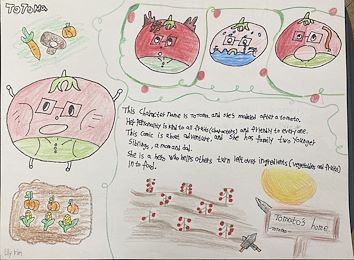 TOTOMA
This Character Name is Totoma, and she's modeled after a tomato.
Her personality is kind to all fruits (characters) and friendly to everyone.
This Comic is about adventure, and she has family two younger
Siblings, a mom and dad.
She is a hero who helps others turn left over ingredients (vegetables and fruits)
in to food.
Tomato's home